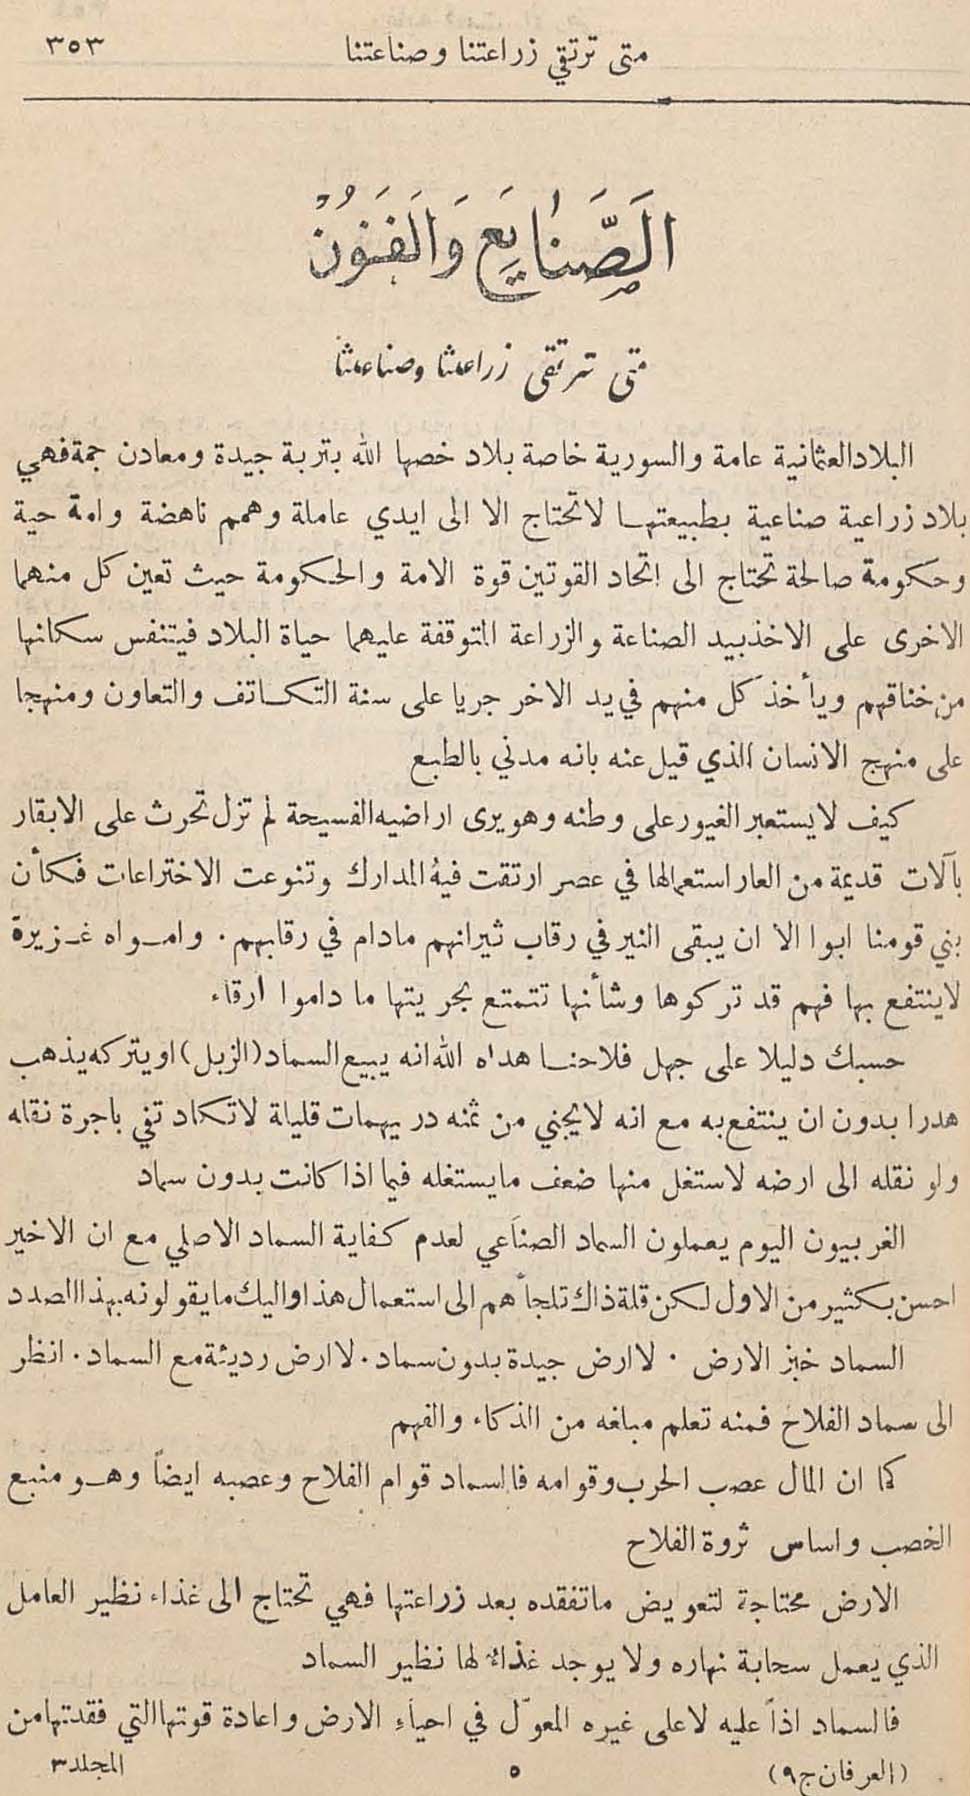 متى ترتقي زراعتنا وصناعتنا ٣٥٣
الصنايع والفنون
متى ترتقي زراعتنا وصناعتنا
البلاد العثمانية عامة والسورية خاصة بلاد خصها الله بتربة جيدة ومعادن جمة فهي
بلاد زراعية صناعية بطبيعتهـا لاتحتاج الا الى ايدي عاملة وهمم ناهضة وامة حية
وحكومة صالحة تحتاج الى اتحاد القوتين قوة الامة والحكومة حيث تعين كل منهما
الاخرى على الاخذ بيد الصناعة والزراعة المتوقفة عليهما حياة البلاد فيتنفس سكانها
من خناقهم ويأخذ كل منهم في يد الاخر جريا على سنة التكـاتف والتعاون ومنهجا
على منهج الانسان الذي قيل عنه بانه مدني بالطبع
كيف لايستعبر الغيور على وطنه وهو يرى اراضيه الفسيحة لم تزل تحرث على الابقار
بآلات قديمة من العار استعمالها في عصر ارتقت فيه المدارك وتنوعت الاختراعات فكأن
بني قومنا ابوا الا ان يبقى النير في رقاب ثيرانهم مادام في رقابهم . وامـواه غـزيرة
لاينتفع بها فهم قد تركوها وشأنها تتمتع بحريتها ما داموا ارقاء
حسبك دليلا على جهل فلاحنـا هداه الله انه يبيع السماد (الزبل) او يتركه يذهب
هدرا بدون ان ينتفع به مع انه لايجني من ثمنه دريهمات قليلة لاتكاد تفي باجرة نقله
ولو نقله الى ارضه لاستغل منها ضعف مايستغله فيما اذا كانت بدون سماد
الغربيون اليوم يعملون السماد الصناعي لعدم كفاية السماد الاصلي مع ان الاخير
احسن بكثير من الاول لكن قلة ذاك تلجأهم الى استعمال هذا واليك مايقولونه بهذا الصدد
السماد خبز الارض . لا ارض جيدة بدون سماد . لا ارض رديئة مع السماد . انظر
الى سماد الفلاح فمنه تعلم مبلغه من الذكاء والفهم
كما ان المال عصب الحرب وقوامه فالسماد قوام الفلاح وعصبه ايضاً وهـو منبع
الخصب واساس ثروة الفلاح
الارض محتاجة لتعويض ماتفقده بعد زراعتها فهي تحتاج الى غذاء نظير العامل
الذي يعمل سحابة نهاره ولا يوجد غذاء لها نظير السماد
فالسماد اذاً عليه لا على غيره المعوّل في احياء الارض واعادة قوتها التي فقدتها من
(العرفان ج٩) ٥ المجلد ٣